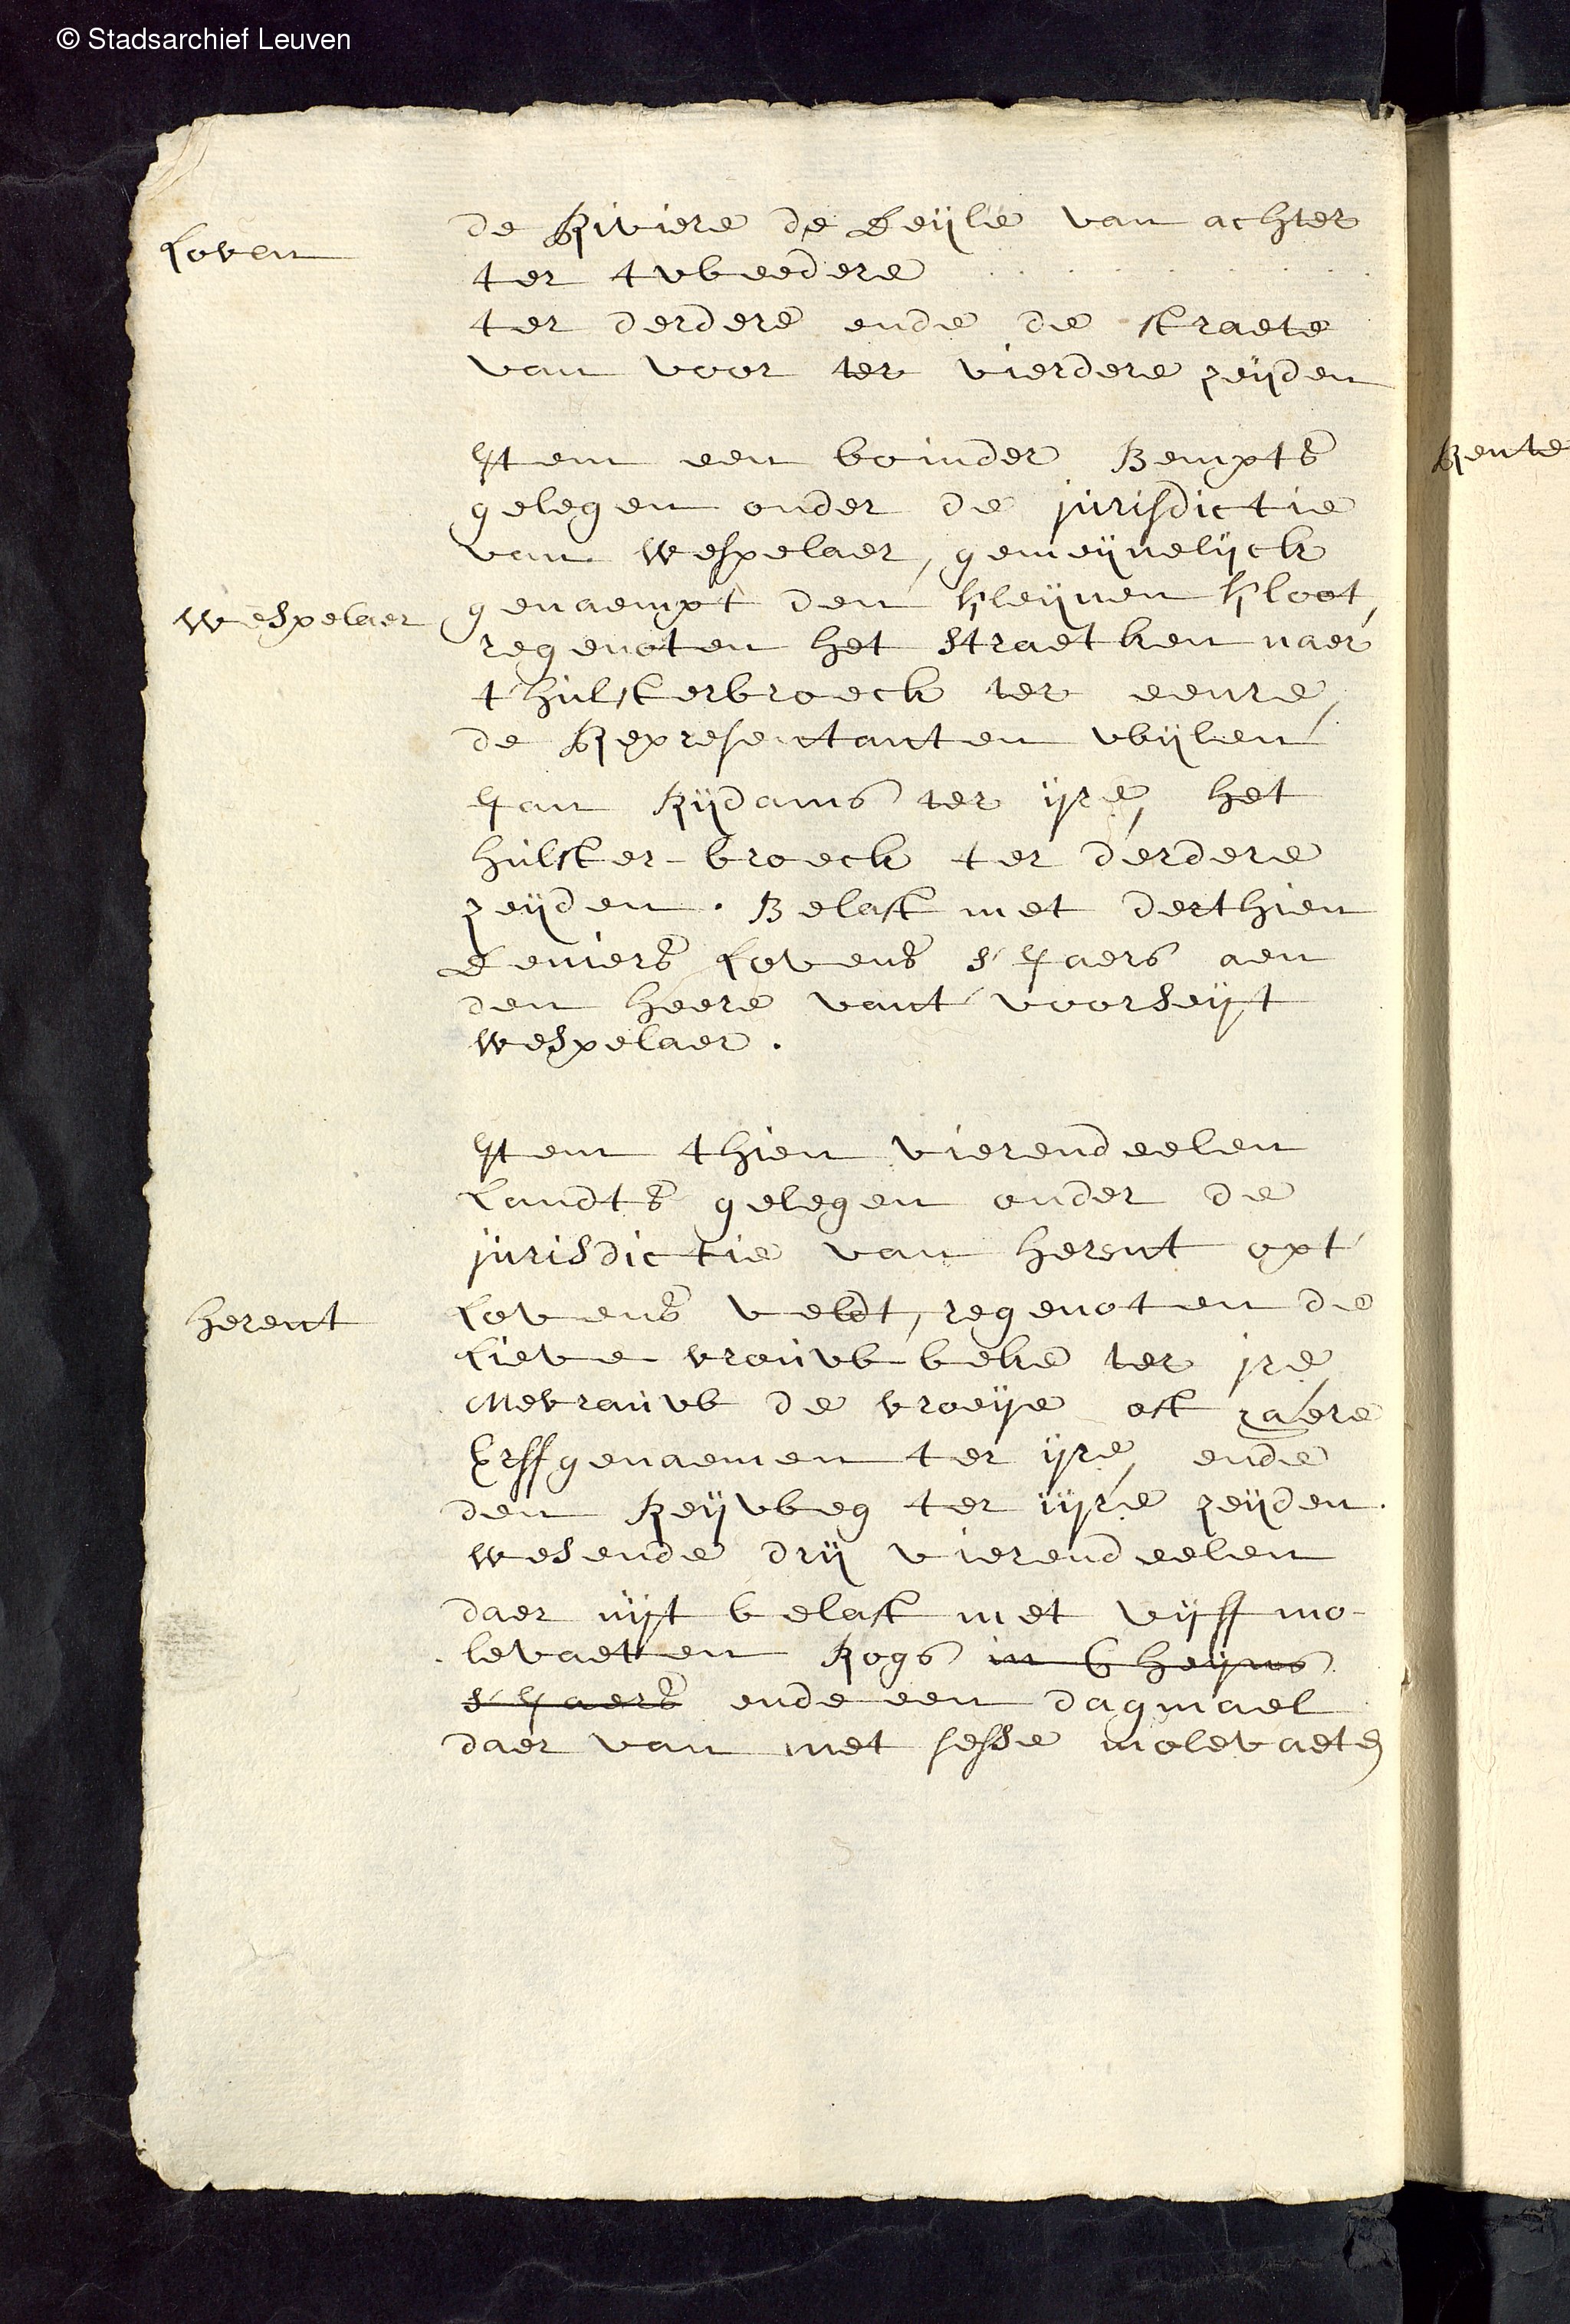 © Stadsarchief Leuven
Loven
de Riviere de Deijle van achter
ter tweedere . . . . . . . .
ter derdere ende de straete
van voor ter vierdere zeijden
Item een boinder Bempts
gelegen onder de jurisdictie
van Wespelaer, gemeijnelijck
Wespelaer
genaempt den Kleijnen Kloot,
regenoten het straetken naer
t'hulsterbroeck ter eenre,
de Representanten wijlen
Jan Rijdams ter ijre, het
hulster-broeck ter derdere
zeijden. Belast met derthien
deniers Lovens s'Jaers aen
den heere vant voorseijt
Wespelaer.
Item thien vierendeelen
Landts gelegen onder de
jurisdictie van herent opt
herent
Lovens veldt, regenoten de
Lieve vrouw beke ter jre,
Mevrouw de vroeije oft haere
Erffgenaemen ter ijre, ende
den Reijweg ter iijre zeijden.
Wesende drij vierendeelen
daer uijt belast met vijff mo-
levaeten Rogs in Cheijns
s'Jaers ende een dagmael
daer van met sesse molevaeten
Rente